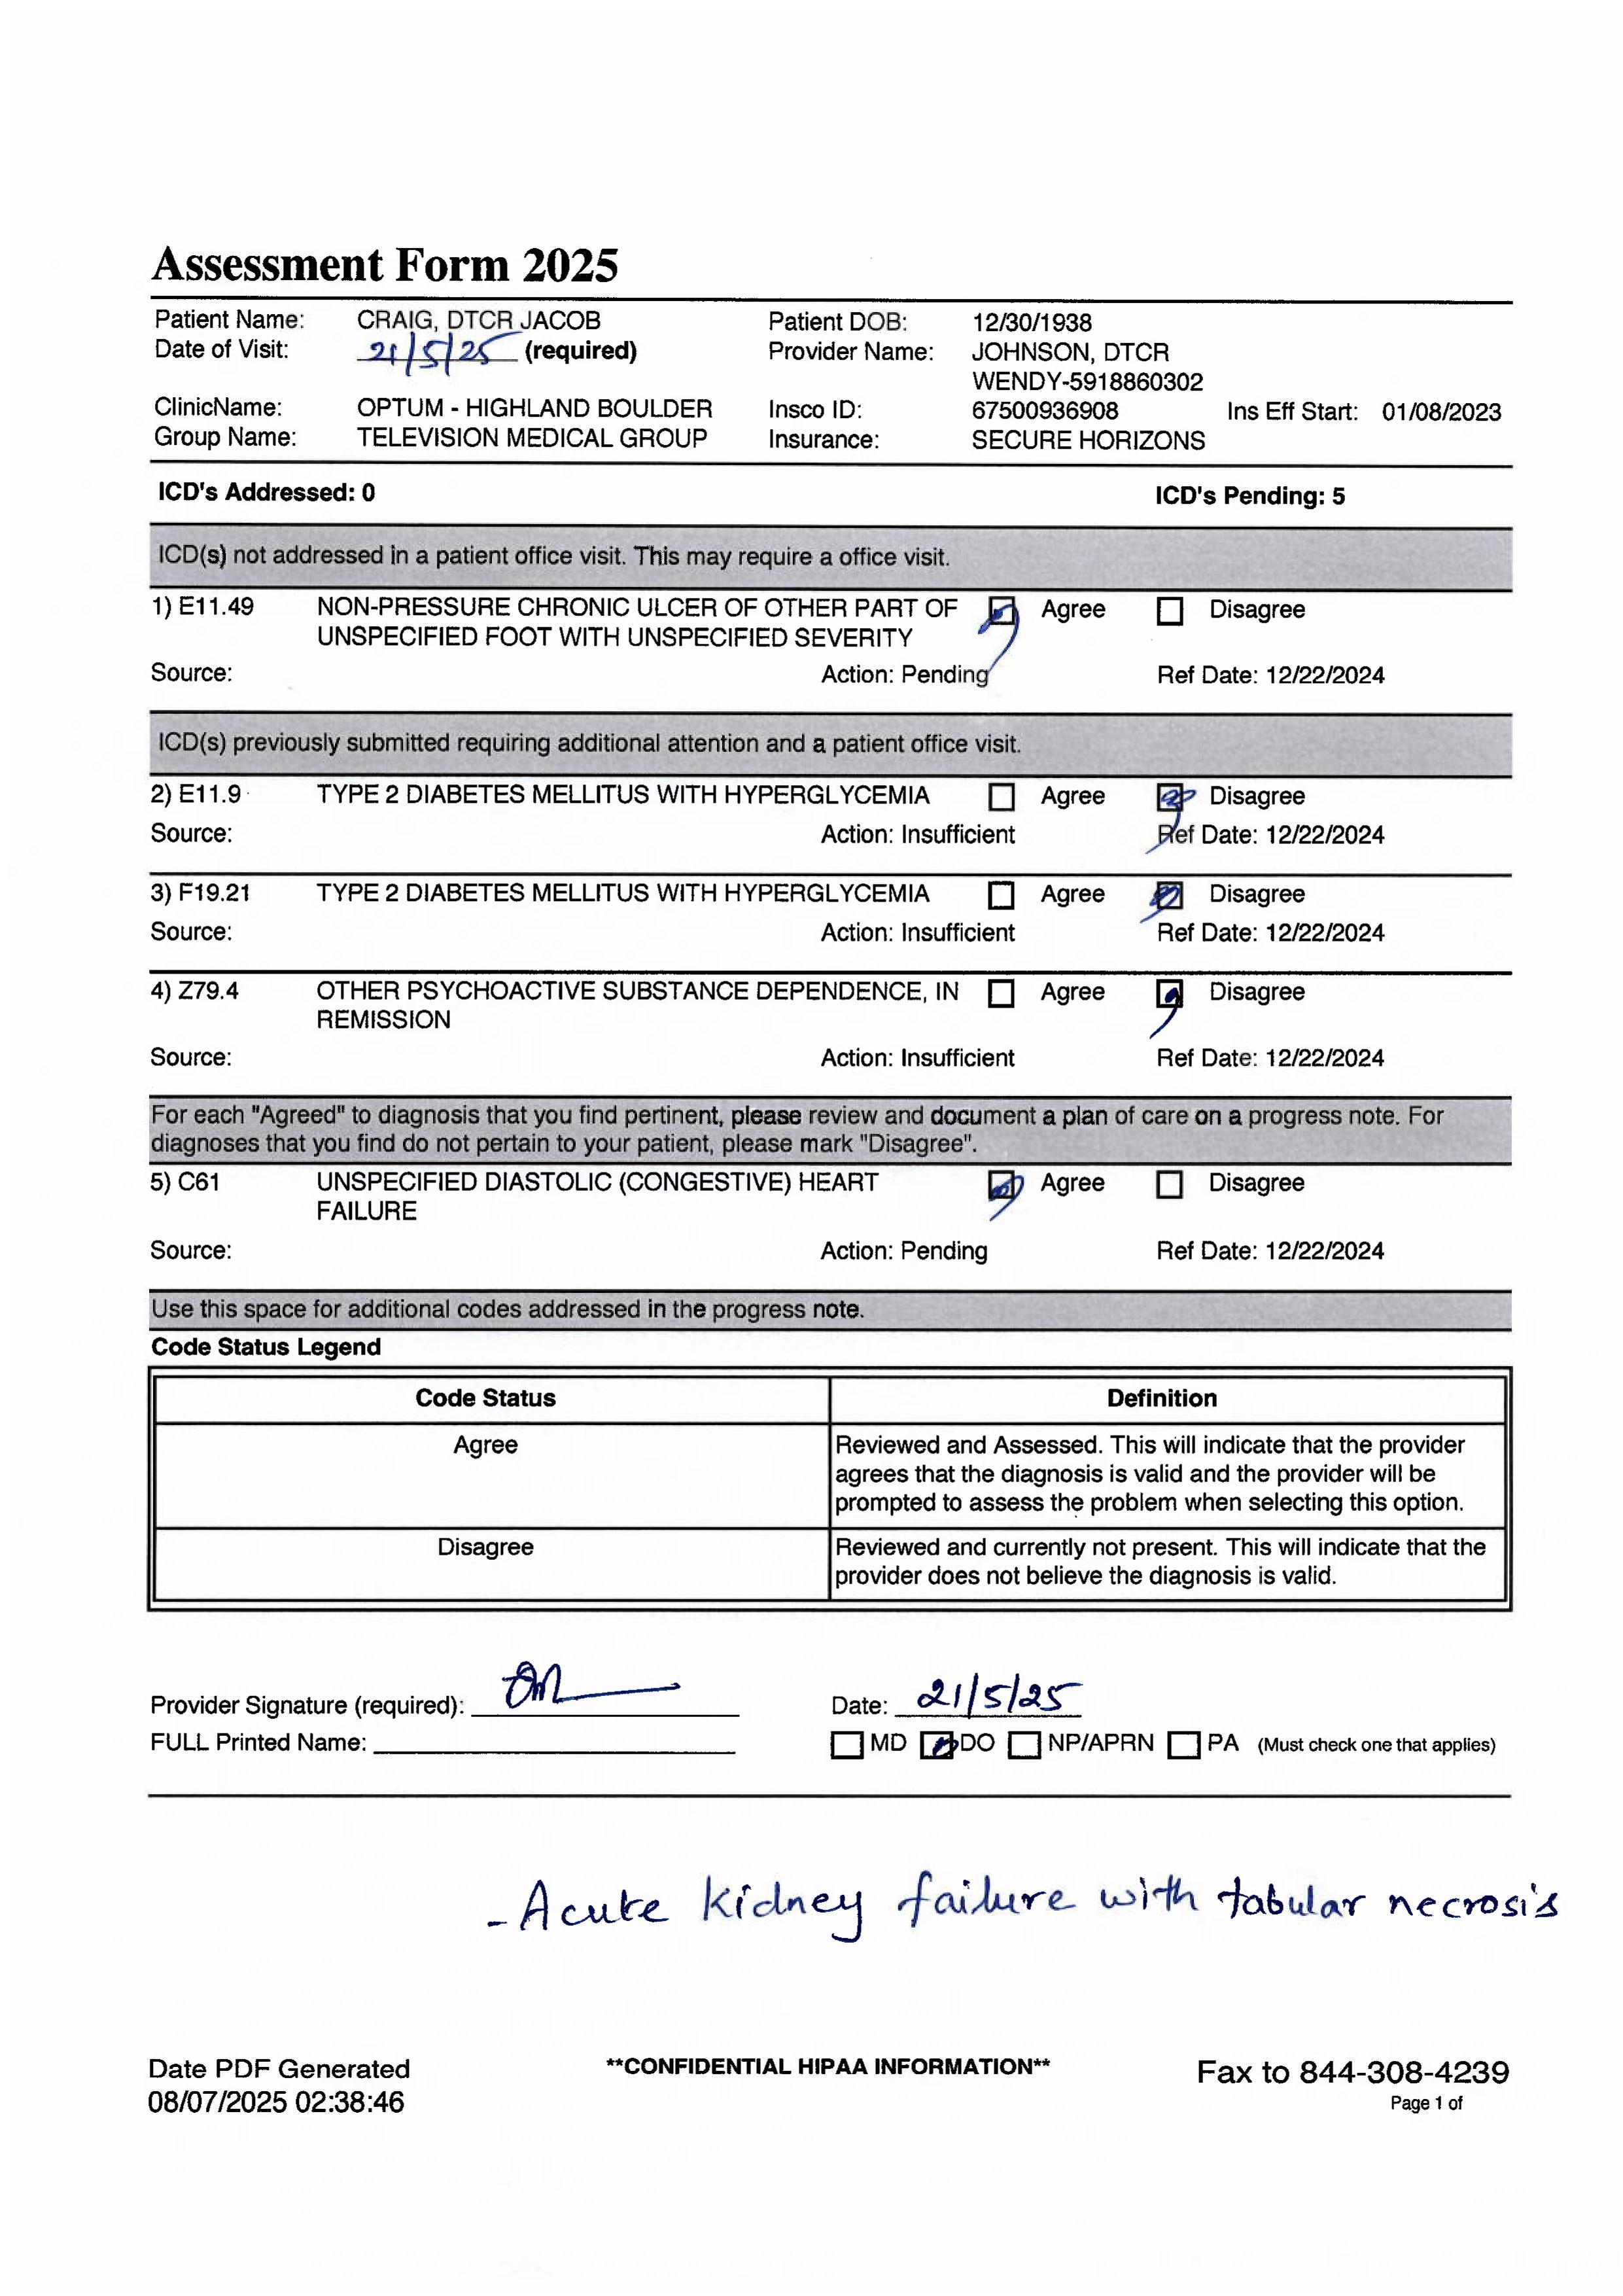 Assessment Form 2025
Patient Name: CRAIG, DTCR JACOB Patient DOB: 12/30/1938
Date of Visit: 21/5/25 (required) Provider Name: JOHNSON, DTCR
WENDY-5918860302
ClinicName: OPTUM - HIGHLAND BOULDER Insco ID: 67500936908 Ins Eff Start: 01/08/2023
Group Name: TELEVISION MEDICAL GROUP Insurance: SECURE HORIZONS
ICD's Addressed: 0 ICD's Pending: 5
ICD(s) not addressed in a patient office visit. This may require a office visit.
1) E11.49 NON-PRESSURE CHRONIC ULCER OF OTHER PART OF Agree Disagree
UNSPECIFIED FOOT WITH UNSPECIFIED SEVERITY
Source: Action: Pending Ref Date: 12/22/2024
ICD(s) previously submitted requiring additional attention and a patient office visit.
2) E11.9 TYPE 2 DIABETES MELLITUS WITH HYPERGLYCEMIA Agree Disagree
Source: Action: Insufficient Ref Date: 12/22/2024
3) F19.21 TYPE 2 DIABETES MELLITUS WITH HYPERGLYCEMIA Agree Disagree
Source: Action: Insufficient Ref Date: 12/22/2024
4) Z79.4 OTHER PSYCHOACTIVE SUBSTANCE DEPENDENCE, IN Agree Disagree
REMISSION
Source: Action: Insufficient Ref Date: 12/22/2024
For each "Agreed" to diagnosis that you find pertinent, please review and document a plan of care on a progress note. For
diagnoses that you find do not pertain to your patient, please mark "Disagree".
5) C61 UNSPECIFIED DIASTOLIC (CONGESTIVE) HEART Agree Disagree
FAILURE
Source: Action: Pending Ref Date: 12/22/2024
Use this space for additional codes addressed in the progress note.
Code Status Legend
Code Status Definition
Agree Reviewed and Assessed. This will indicate that the provider
agrees that the diagnosis is valid and the provider will be
prompted to assess the problem when selecting this option.
Disagree Reviewed and currently not present. This will indicate that the
provider does not believe the diagnosis is valid.
Provider Signature (required): Date: 21/5/25
FULL Printed Name: MD DO NP/APRN PA (Must check one that applies)
- Acute kidney failure with tabular necrosis
Date PDF Generated **CONFIDENTIAL HIPAA INFORMATION** Fax to 844-308-4239
08/07/2025 02:38:46 Page 1 of